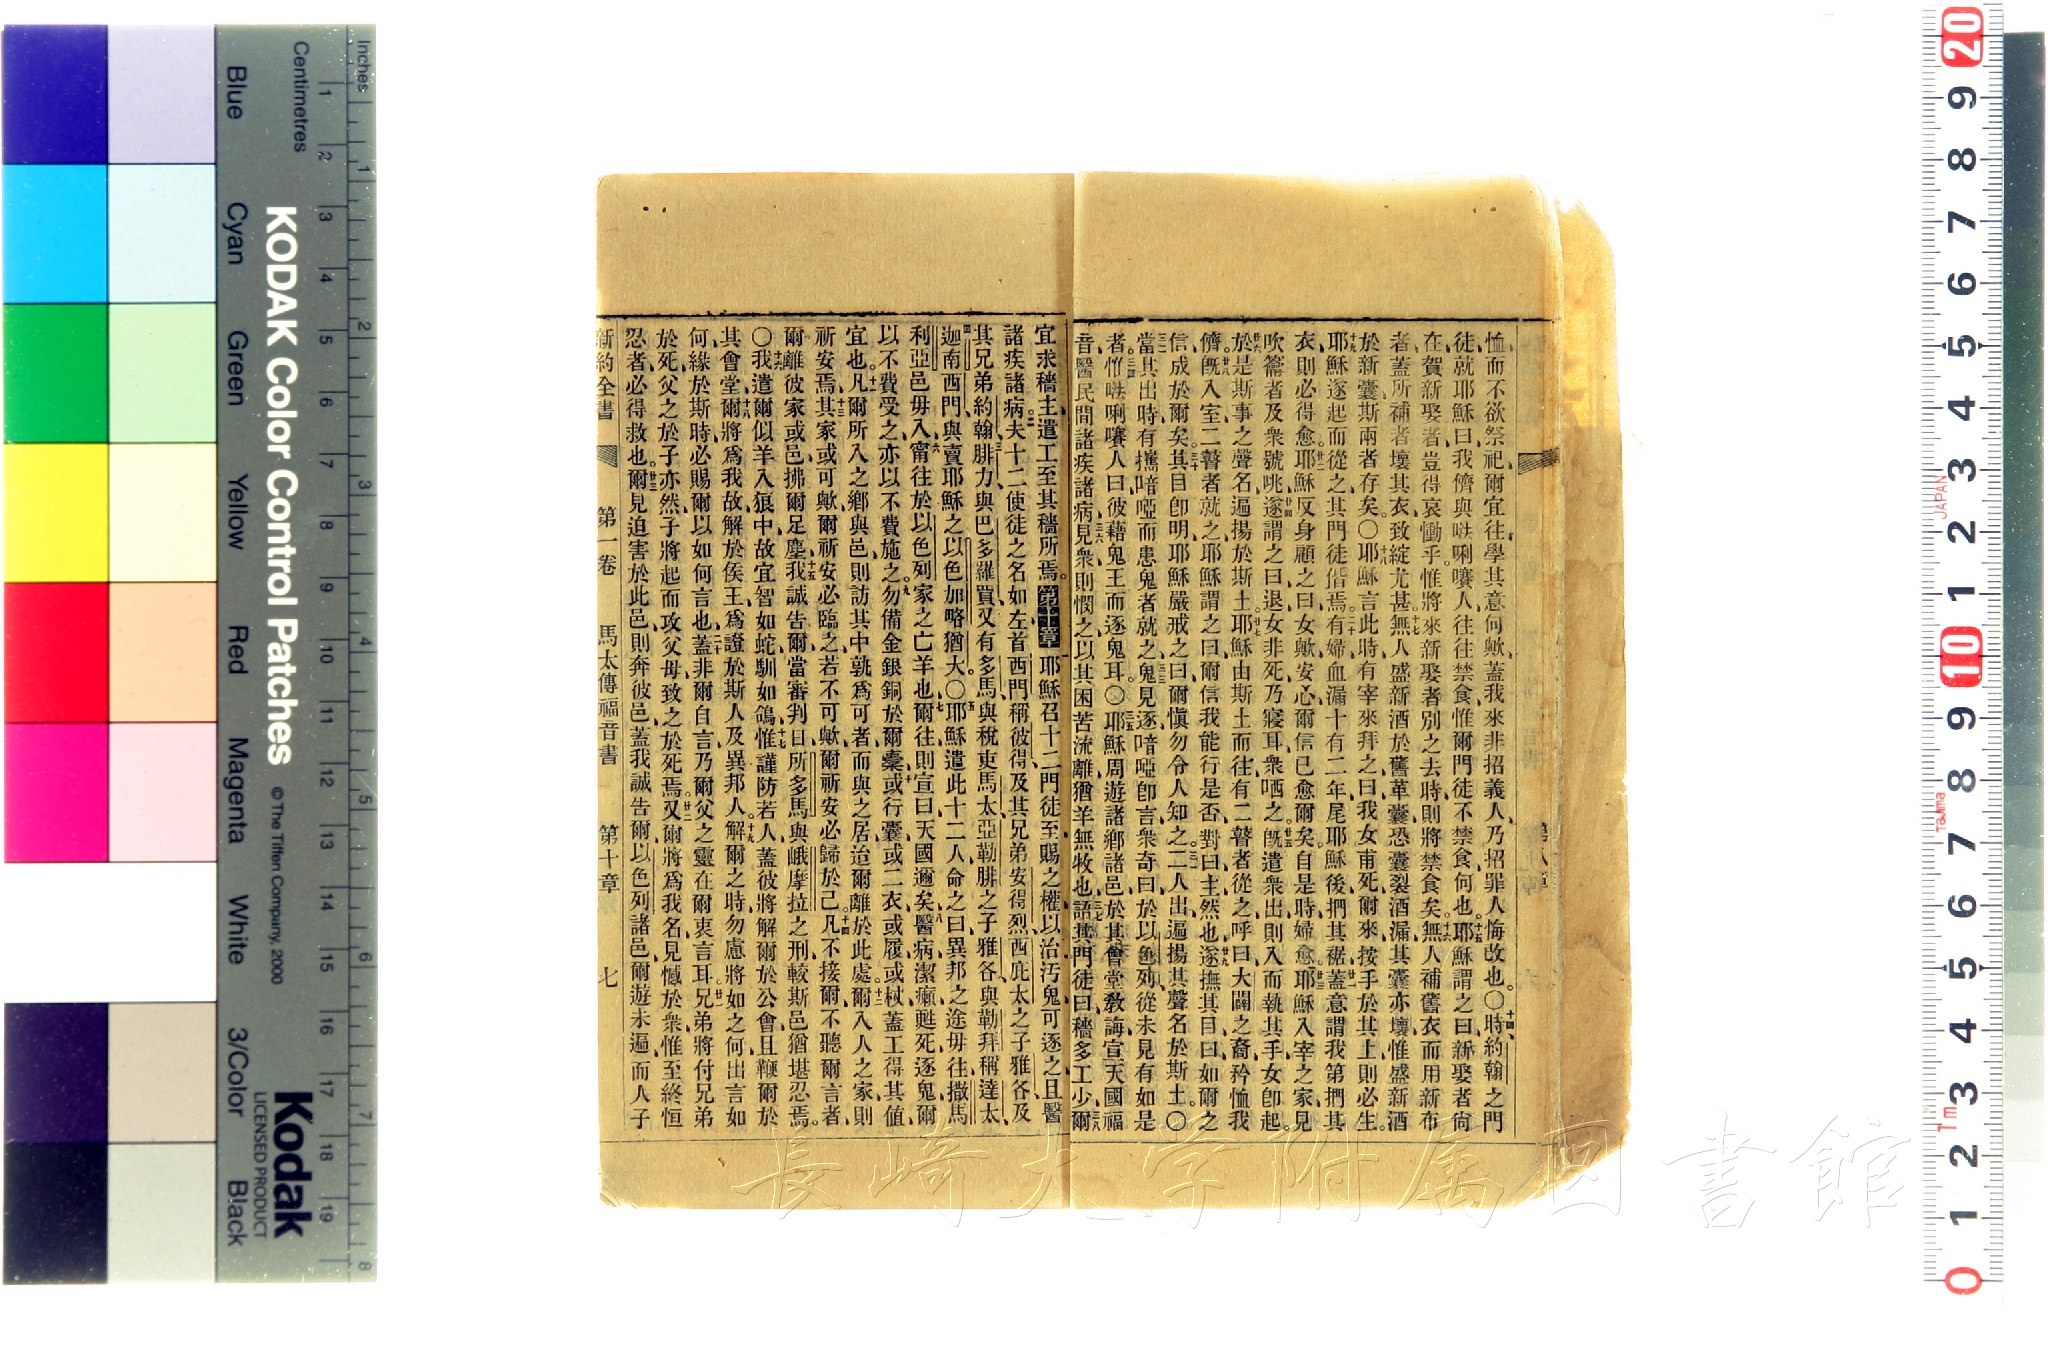 恤而不欲祭祀爾宜往學其意何歟蓋我來非招義人乃招罪人悔改也〇十四時約翰之門
徒就耶穌曰我儕與𠵽唎㘔人往往禁食惟爾門徒不禁食何也十五耶穌謂之曰新娶者尙
在賀新娶者豈得哀慟乎惟將來新娶者別之去時則將禁食矣十六無人補舊衣而用新布
者蓋所補者壞其衣致綻尤甚十七無人盛新酒於舊革囊恐囊裂酒漏其囊亦壞惟盛新酒
於新囊斯兩者存矣〇十八耶穌言此時有宰來拜之曰我女甫死爾來按手於其上則必生
十九耶穌遂起而從之其門徒偕焉二十有婦血漏十有二年尾耶穌後捫其裾廿一蓋意謂我第捫其
衣則必得愈廿二耶穌反身顧之曰女歟安心爾信已愈爾矣自是時婦愈廿三耶穌入宰之家見
吹籥者及衆號咷廿四遂謂之曰退女非死乃寢耳衆哂之廿五旣遣衆出則入而執其手女卽起
廿六於是斯事之聲名遍揚於斯土廿七耶穌由斯土而往有二瞽者從之呼曰大闢之裔矜恤我
儕廿八旣入室二瞽者就之耶穌謂之曰爾信我能行是否對曰主然也廿九遂撫其目曰如爾之
信成於爾矣三十其目卽明耶穌嚴戒之曰爾愼勿令人知之三一二人出遍揚其聲名於斯土〇
三二當其出時有攜喑啞而患鬼者就之三三鬼見逐喑啞卽言衆奇曰於以色列從未見有如是
者三四惟𠵽唎㘔人曰彼藉鬼王而逐鬼耳〇三五耶穌周遊諸鄕諸邑於其會堂敎誨宣天國福
音醫民間諸疾諸病三六見衆則憫之以其困苦流離猶羊無牧也三七語其門徒曰穡多工少三八爾
宜求穡主遣工至其穡所焉第十章耶穌召十二門徒至賜之權以治汚鬼可逐之且醫
諸疾諸病二夫十二使徒之名如左首西門稱彼得及其兄弟安得烈西庇太之子雅各及
其兄弟約翰三腓力與巴多羅買又有多馬與稅吏馬太亞勒腓之子雅各與勒拜稱達太
四迦南西門與賣耶穌之以色加略猶大〇五耶穌遣此十二人命之曰異邦之途毋往撒馬
利亞邑毋入六甯往於以色列家之亡羊也七爾往則宣曰天國邇矣八醫病潔癩甦死逐鬼爾
以不費受之亦以不費施之九勿備金銀銅於爾橐十或行囊或二衣或履或杖蓋工得其値
宜也十一凡爾所入之鄕與邑則訪其中孰爲可者而與之居迨爾離於此處十二爾入人之家則
祈安焉十三其家或可歟爾祈安必臨之若不可歟爾祈安必歸於己十四凡不接爾不聽爾言者
爾離彼家或邑拂爾足塵十五我誠告爾當審判日所多馬與峨摩拉之刑較斯邑猶堪忍焉
〇十六我遣爾似羊入狼中故宜智如蛇馴如鴿十七惟謹防若人蓋彼將解爾於公會且鞭爾於
其會堂十八爾將爲我故解於侯王爲證於斯人及異邦人十九解爾之時勿慮將如之何出言如
何緣於斯時必賜爾以如何言也二十蓋非爾自言乃爾父之靈在爾衷言耳廿一兄弟將付兄弟
於死父之於子亦然子將起而攻父母致之於死焉廿二又爾將爲我名見憾於衆惟至終恒
忍者必得救也廿三爾見迫害於此邑則奔彼邑蓋我誠告爾以色列諸邑爾遊未遍而人子
新約全書　第一卷　馬太傳福音書　第十章　七
長崎大学附属図書館
Inches
Centimetres
KODAK Color Control Patches
© The Tiffen Company, 2000
Kodak
LICENSED PRODUCT
Blue
Cyan
Green
Yellow
Red
Magenta
White
3/Color
Black
1 2 3 4 5 6 7 8 9 10 11 12 13 14 15 16 17 18 19
1 2 3 4 5 6 7 8
20 9 8 7 6 5 4 3 2 1 10 9 8 7 6 5 4 3 2 1 0
JAPAN
Tajima
Tm